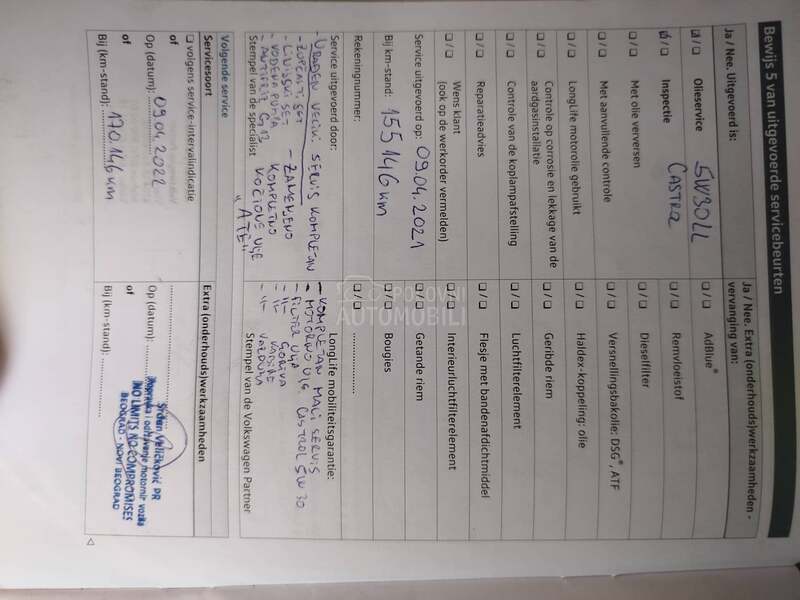 Bewijs 5 van uitgevoerde servicebeurten
Ja / Nee. Uitgevoerd is:
Olieservice 5W30LL
Inspectie CASTROL
Met olie verversen
Met aanvullende controle
LongLife motorolie gebruikt
Controle op corrosie en lekkage van de
aardgasinstallatie
Controle van de koplampafstelling
Reparatieadvies
Wens klant
(ook op de werkorder vermelden)
Service uitgevoerd op: 09.04.2021
Bij km-stand: 155146 km
Rekeningnummer:
Service uitgevoerd door:
- URAĐEN VELIKI SERVIS KOMPLETAN
- ZUPČASTI SET
- LINIJSKI SET
- VODENA PUMPA
- ANTIFRIZ G12
- ZAMENJENO
KOMPLETNO
KOČIONE ULJE
"ATE"
Stempel van de specialist
Ja / Nee. Extra (onderhouds)werkzaamheden -
vervanging van:
AdBlue®
Remvloeistof
Dieselfilter
Versnellingsbakolie: DSG®, ATF
Haldex-koppeling: olie
Geribde riem
Luchtfilterelement
Flesje met bandenafdichtmiddel
Interieurluchtfilterelement
Getande riem
Bougies
LongLife mobiliteitsgarantie:
- KOMPLETAN MALI SERVIS
- MOTORNO ULJE CASTROL 5W30
- FILTER ULJA
-//- GORIVA
-//- KABINE
-//- VAZDUHA
Stempel van de Volkswagen Partner
POLOVNI
AUTOMOBILI
Volgende service
Servicesoort
volgens service-intervalindicatie
of
Op (datum): 09.04.2022
of
Bij (km-stand): 170.146 km
Extra (onderhouds)werkzaamheden
Op (datum):
of
Bij (km-stand):
Srđan Veličković PR
Popravka i održavanje motornih vozila
NO LIMITS NO COMPROMISES
BEOGRAD - NOVI BEOGRAD